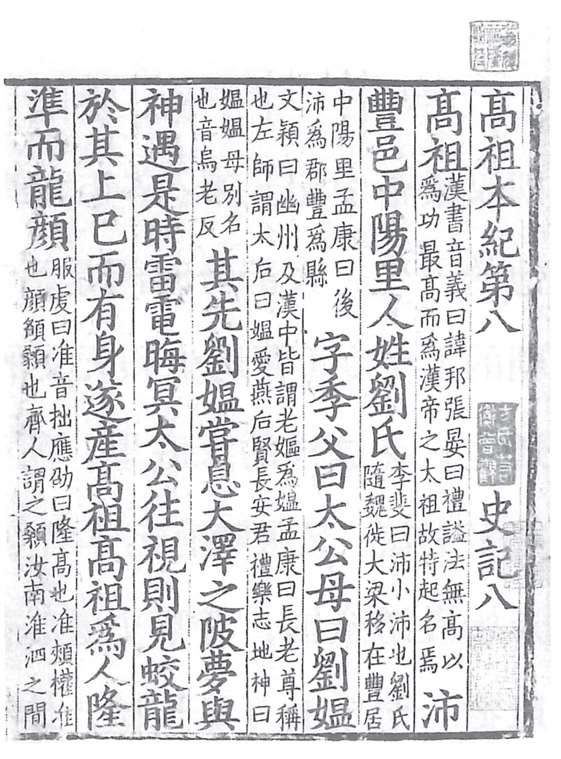 髙祖本紀第八 史記八
髙祖漢書音義曰諱邦張晏曰禮謚法無髙以爲功最髙而爲漢帝之太祖故特起名焉沛
豐邑中陽里人姓劉氏李斐曰沛小沛也劉氏隨魏徙大梁移在豐居
中陽里孟康曰後沛爲郡豐爲縣字季父曰太公母曰劉媼
文穎曰幽州及漢中皆謂老嫗爲媼孟康曰長老尊稱也左師謂太后曰媼愛燕后賢長安君禮樂志地神曰
媼媼母別名也音烏老反其先劉媼嘗息大澤之陂夢與
神遇是時雷電晦冥太公往視則見蛟龍
於其上巳而有身遂產髙祖髙祖爲人隆
準而龍顔服虔曰准音拙應劭曰隆髙也准頰權准也顔頟顙也齊人謂之顙汝南淮泗之間